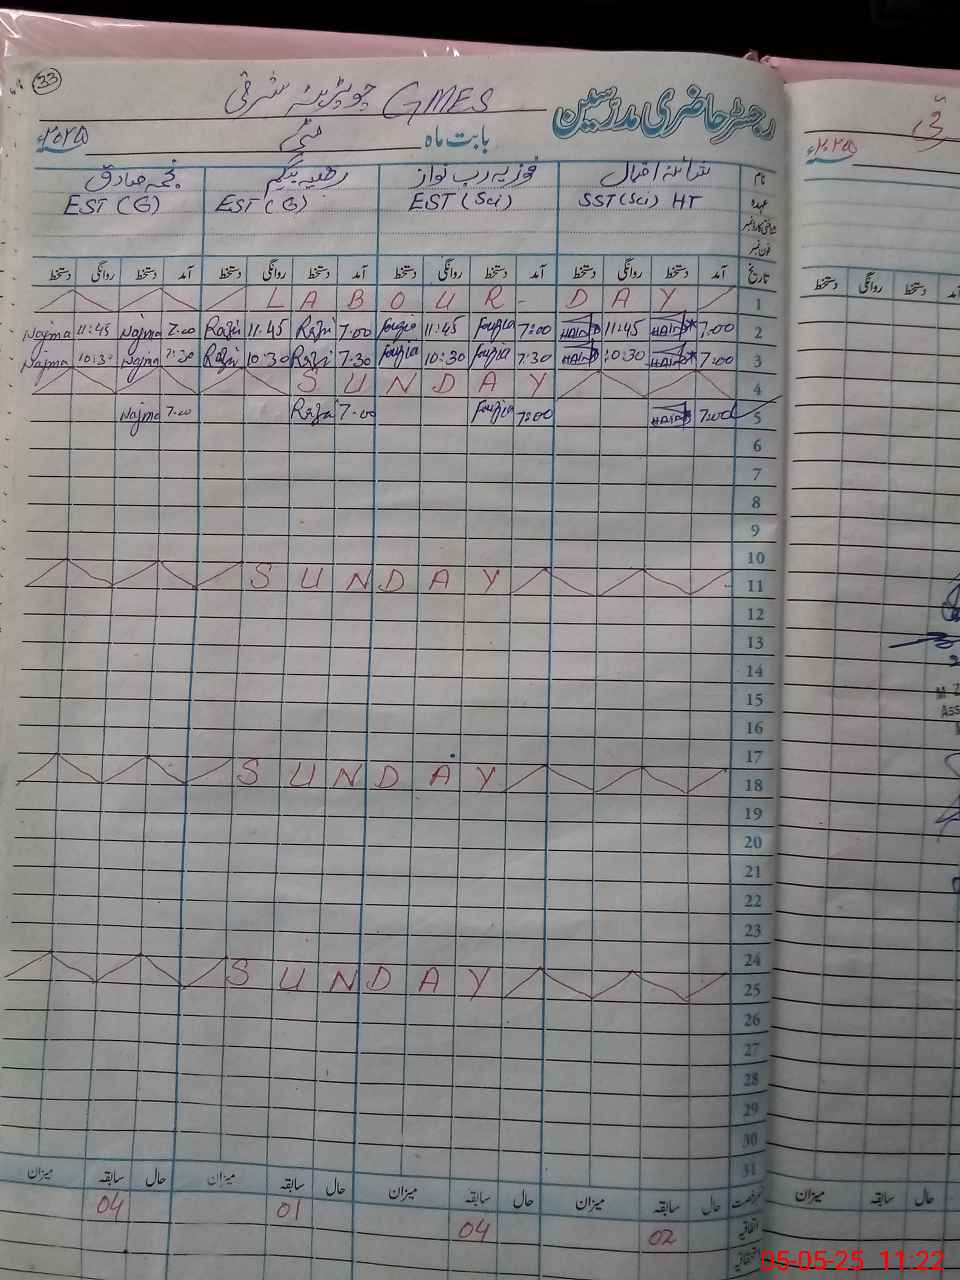 33
GMES چوہڑ ہٹہ شرقی
رجسٹر حاضری مدرسین
بابت ماہ مئی ۲۰۲۵ء
نام فوزیہ رب نواز رضیہ بیگم نجمہ صادق
عہدہ SST (Sci) HT EST (Sci) EST (G) EST (G)
فون نمبر
تاریخ آمد دستخط روانگی دستخط آمد دستخط روانگی دستخط آمد دستخط روانگی دستخط آمد دستخط روانگی دستخط
LABOUR - DAY 1
Najma 11:45 Najma 7:00 Razi 11.45 Razi 7.00 Fouzia 11:45 Fouzia 7:00 11:45 7:00 2
Najma 10:30 Najma 7:30 Razi 10:30 Razi 7.30 Fouzia 10:30 Fouzia 7:30 10:30 7:00 3
SUNDAY 4
Najma 7.00 Razi 7.00 Fouzia 7:00 7:00 5
6
7
8
9
10
SUNDAY 11
12
13
14
15
16
17
SUNDAY 18
19
20
21
22
23
24
SUNDAY 25
26
27
28
29
30
31
رخصت حال سابقہ میزان حال سابقہ میزان حال سابقہ میزان حال سابقہ میزان
اتفاقیہ 02 04 01 04
۲۰۲۵ء
دستخط روانگی دستخط آمد
M Z
Ass
حال سابقہ میزان
05-05-25 11:22